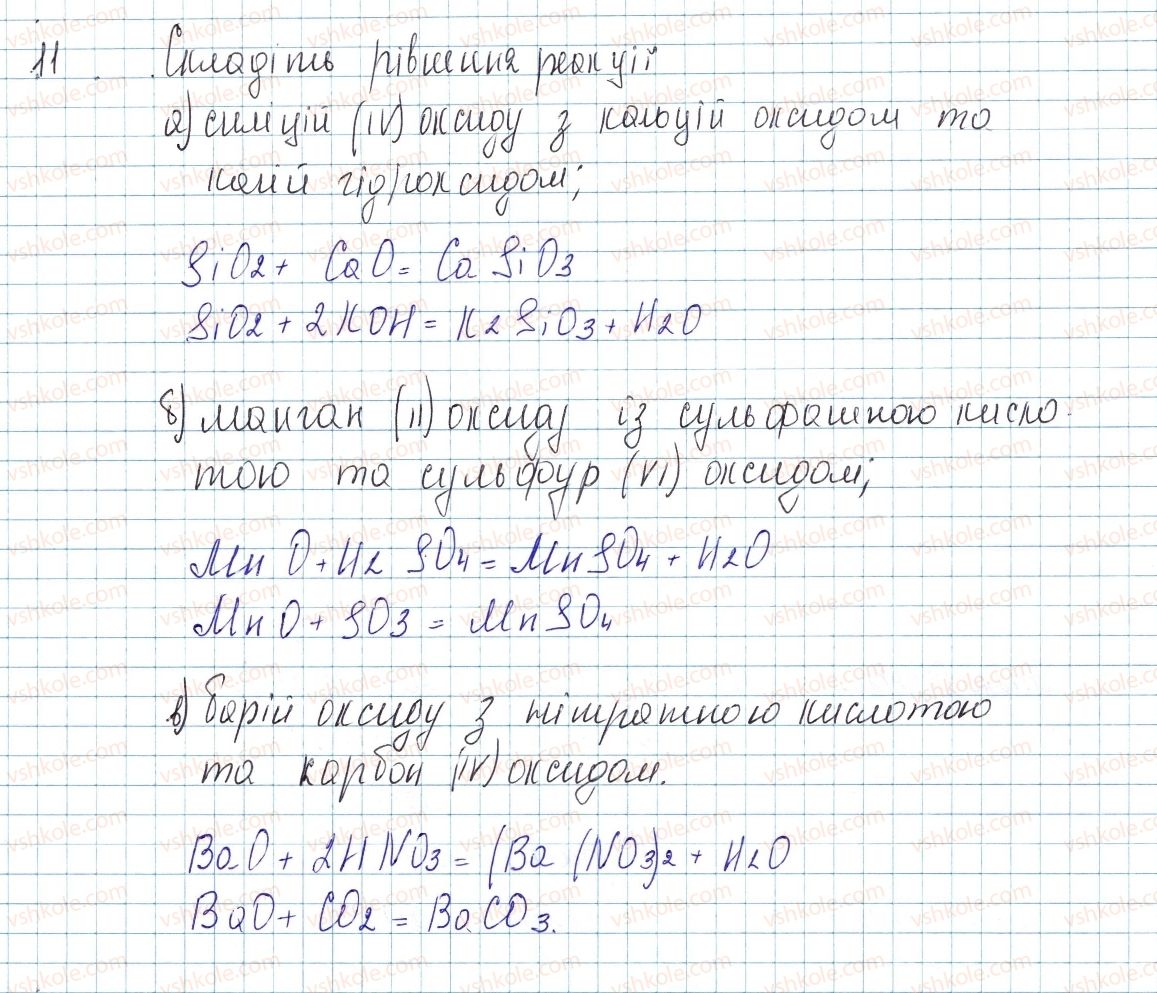 11. Складіть рівняння реакції
а) силіцій (IV) оксиду з кальцій оксидом та
калій гідроксидом;
SiO2 + CaO = CaSiO3
SiO2 + 2KOH = K2SiO3 + H2O
б) манган (II) оксиду із сульфатною кисло
тою та сульфур (VI) оксидом;
MnO + H2SO4 = MnSO4 + H2O
MnO + SO3 = MnSO4
в) барій оксиду з нітратною кислотою
та карбон (IV) оксидом.
BaO + 2HNO3 = (Ba(NO3)2 + H2O
BaO + CO2 = BaCO3.
vshkole.com